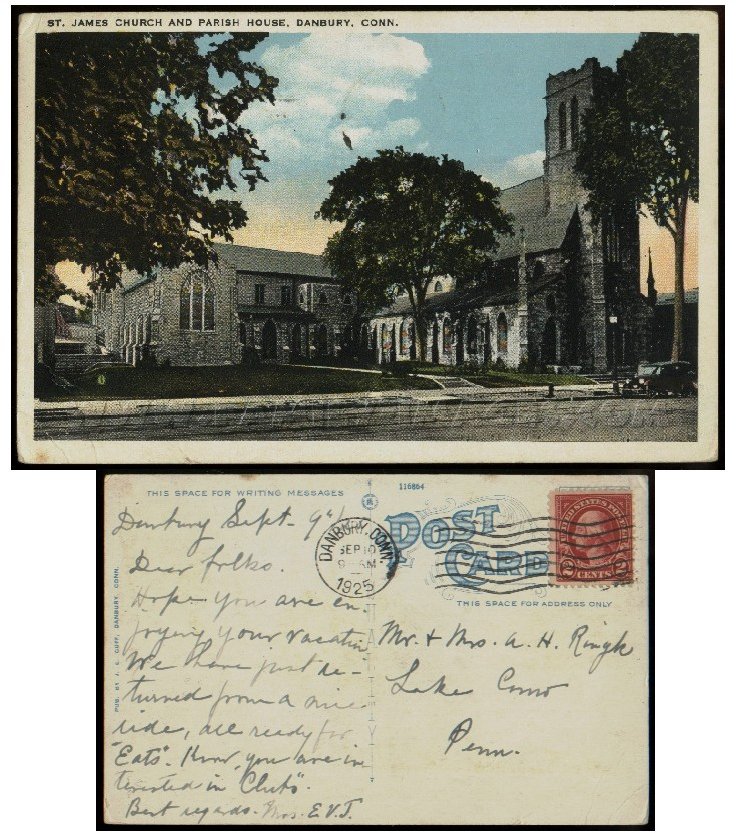 ST. JAMES CHURCH AND PARISH HOUSE, DANBURY, CONN.
THIS SPACE FOR WRITING MESSAGES
116864
POST
CARD
DANBURY, CONN.
SEP 10
9 AM
1925
UNITED STATES POSTAGE
2 CENTS 2
THIS SPACE FOR ADDRESS ONLY
PUB. BY J. E. GOFF, DANBURY, CONN.
Danbury Sept - 9th
Dear folks.
Hope you are en-
joying your vacation
We have just re-
turned from a nice
ride, all ready for
"Eats". Know you are in
terested in "Clubs".
Best regards. Mrs. E.V.T.
Mr. & Mrs. A. H.
Lake Como
Penn.